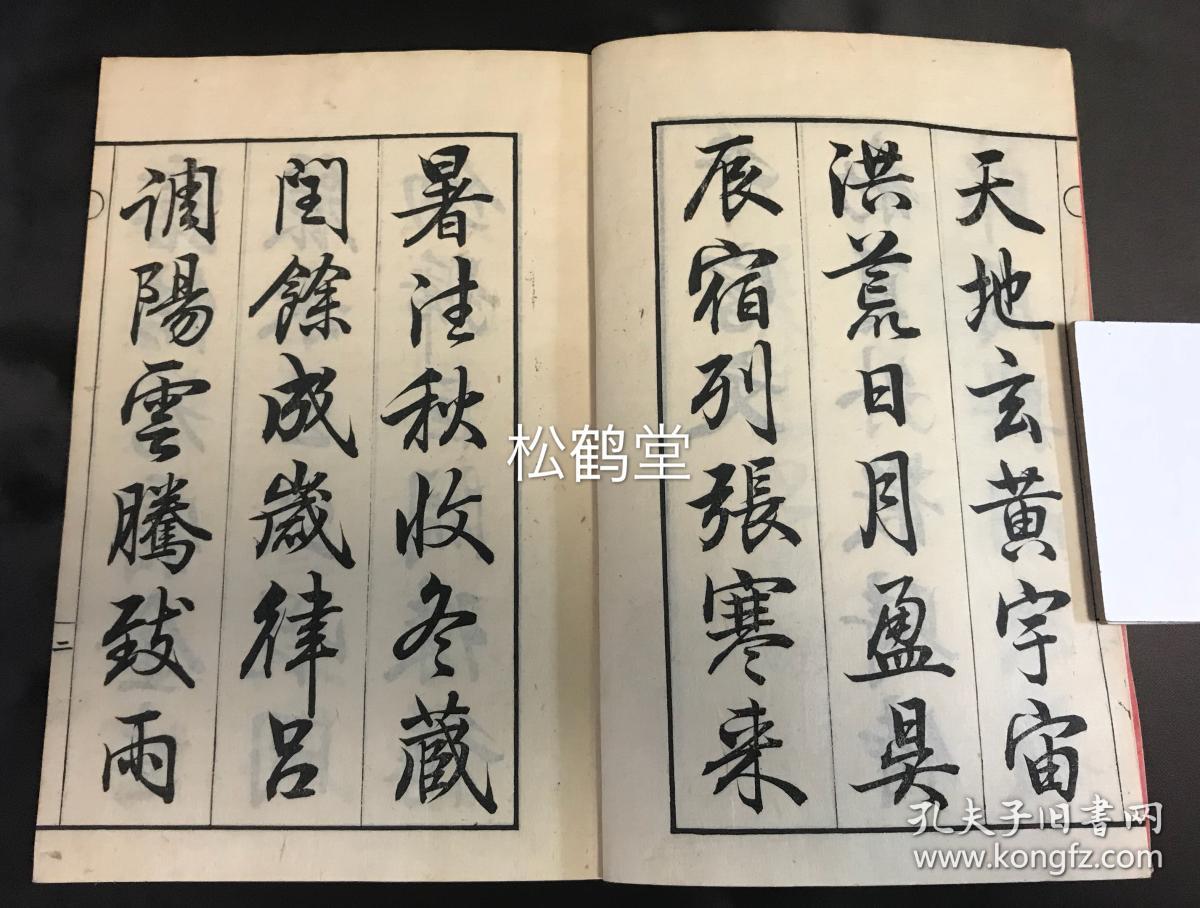 天地玄黄宇宙
洪荒日月盈昃
辰宿列張寒来
暑往秋收冬蔵
閏餘成歲律呂
調陽雲騰致雨
二
松鹤堂
孔夫子旧书网
www.kongfz.com